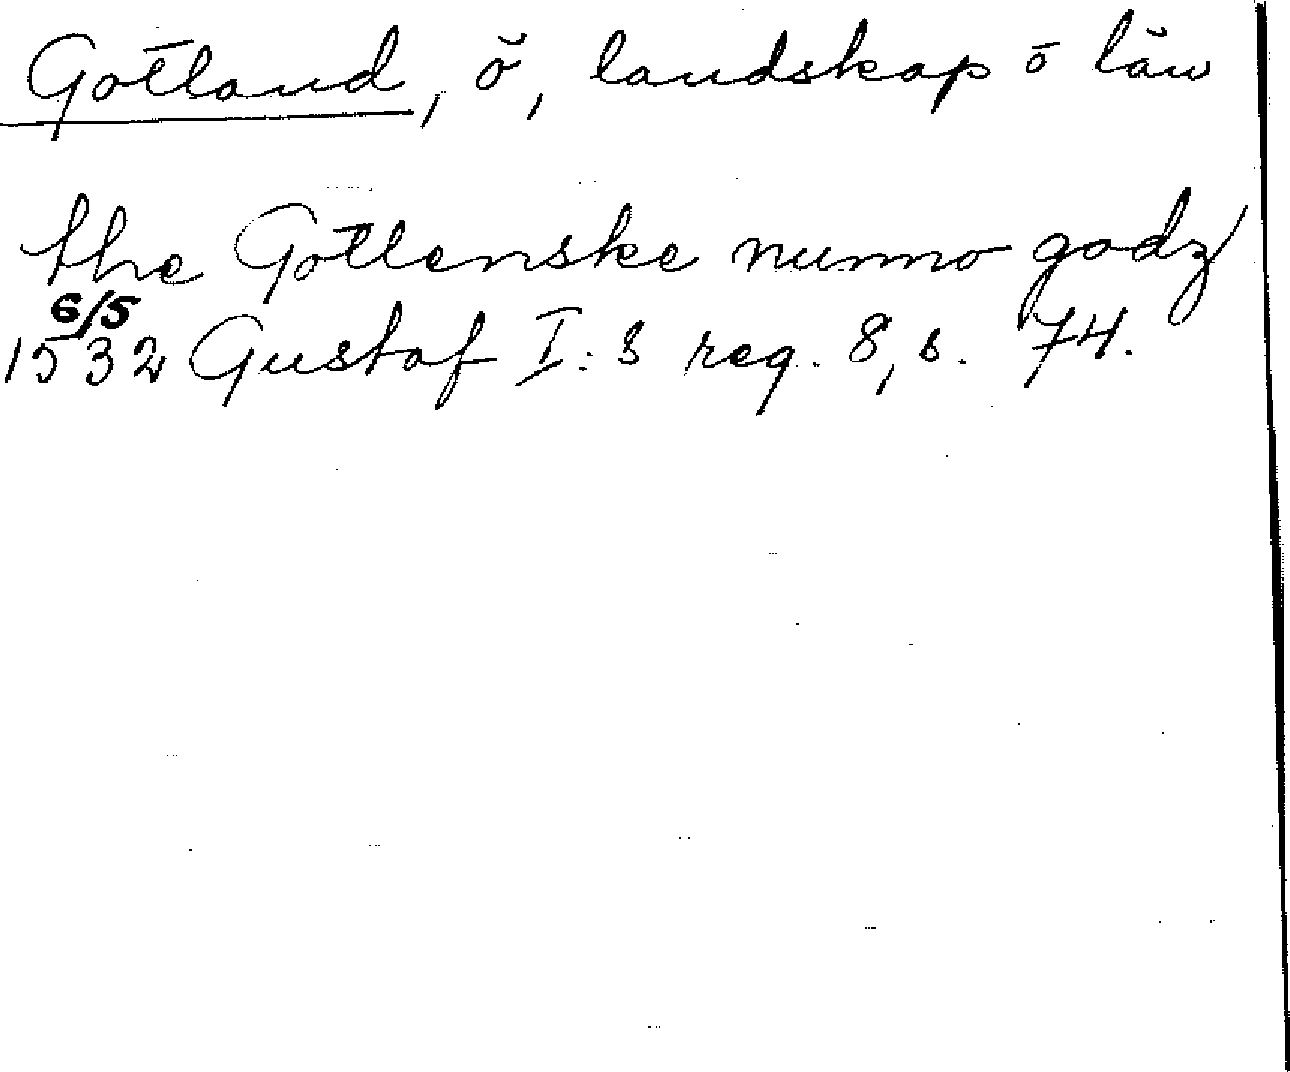 Gotland, ö, landskap o län
the Gotlenske nummo godz
6/5
1532 Gustaf I:s reg. 8, s. 74.